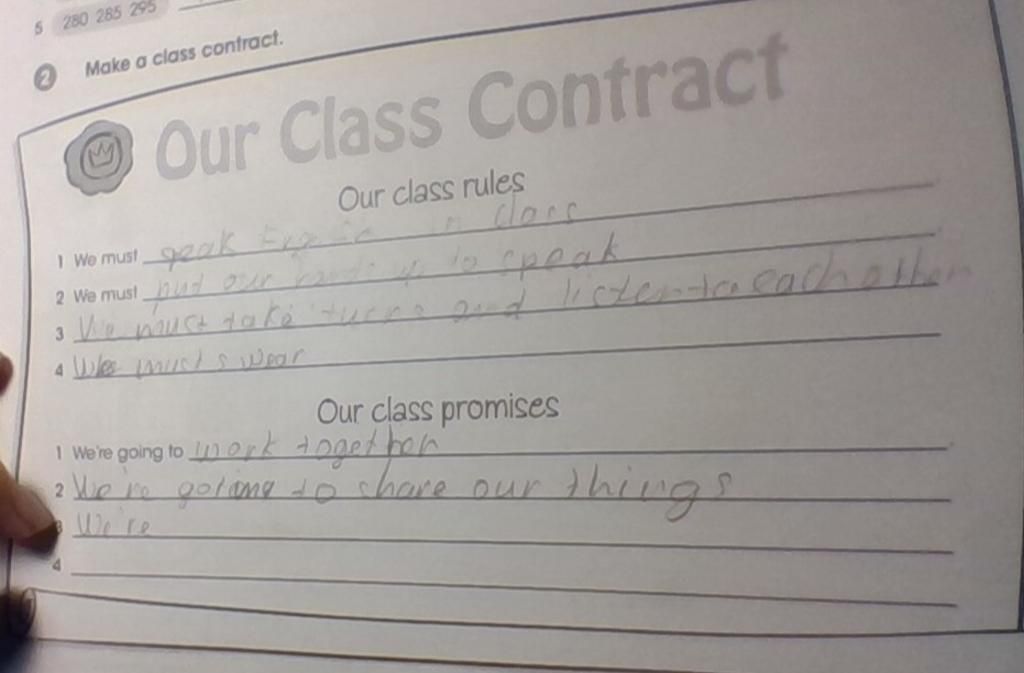 5 280 285 295
2 Make a class contract.
Our Class Contract
Our class rules
1 We must speak in class
2 We must put our hands up to speak
3 We must take turns and listen to each other
4 We must swear
Our class promises
1 We're going to work together
2 We're going to share our things
3 We're
4